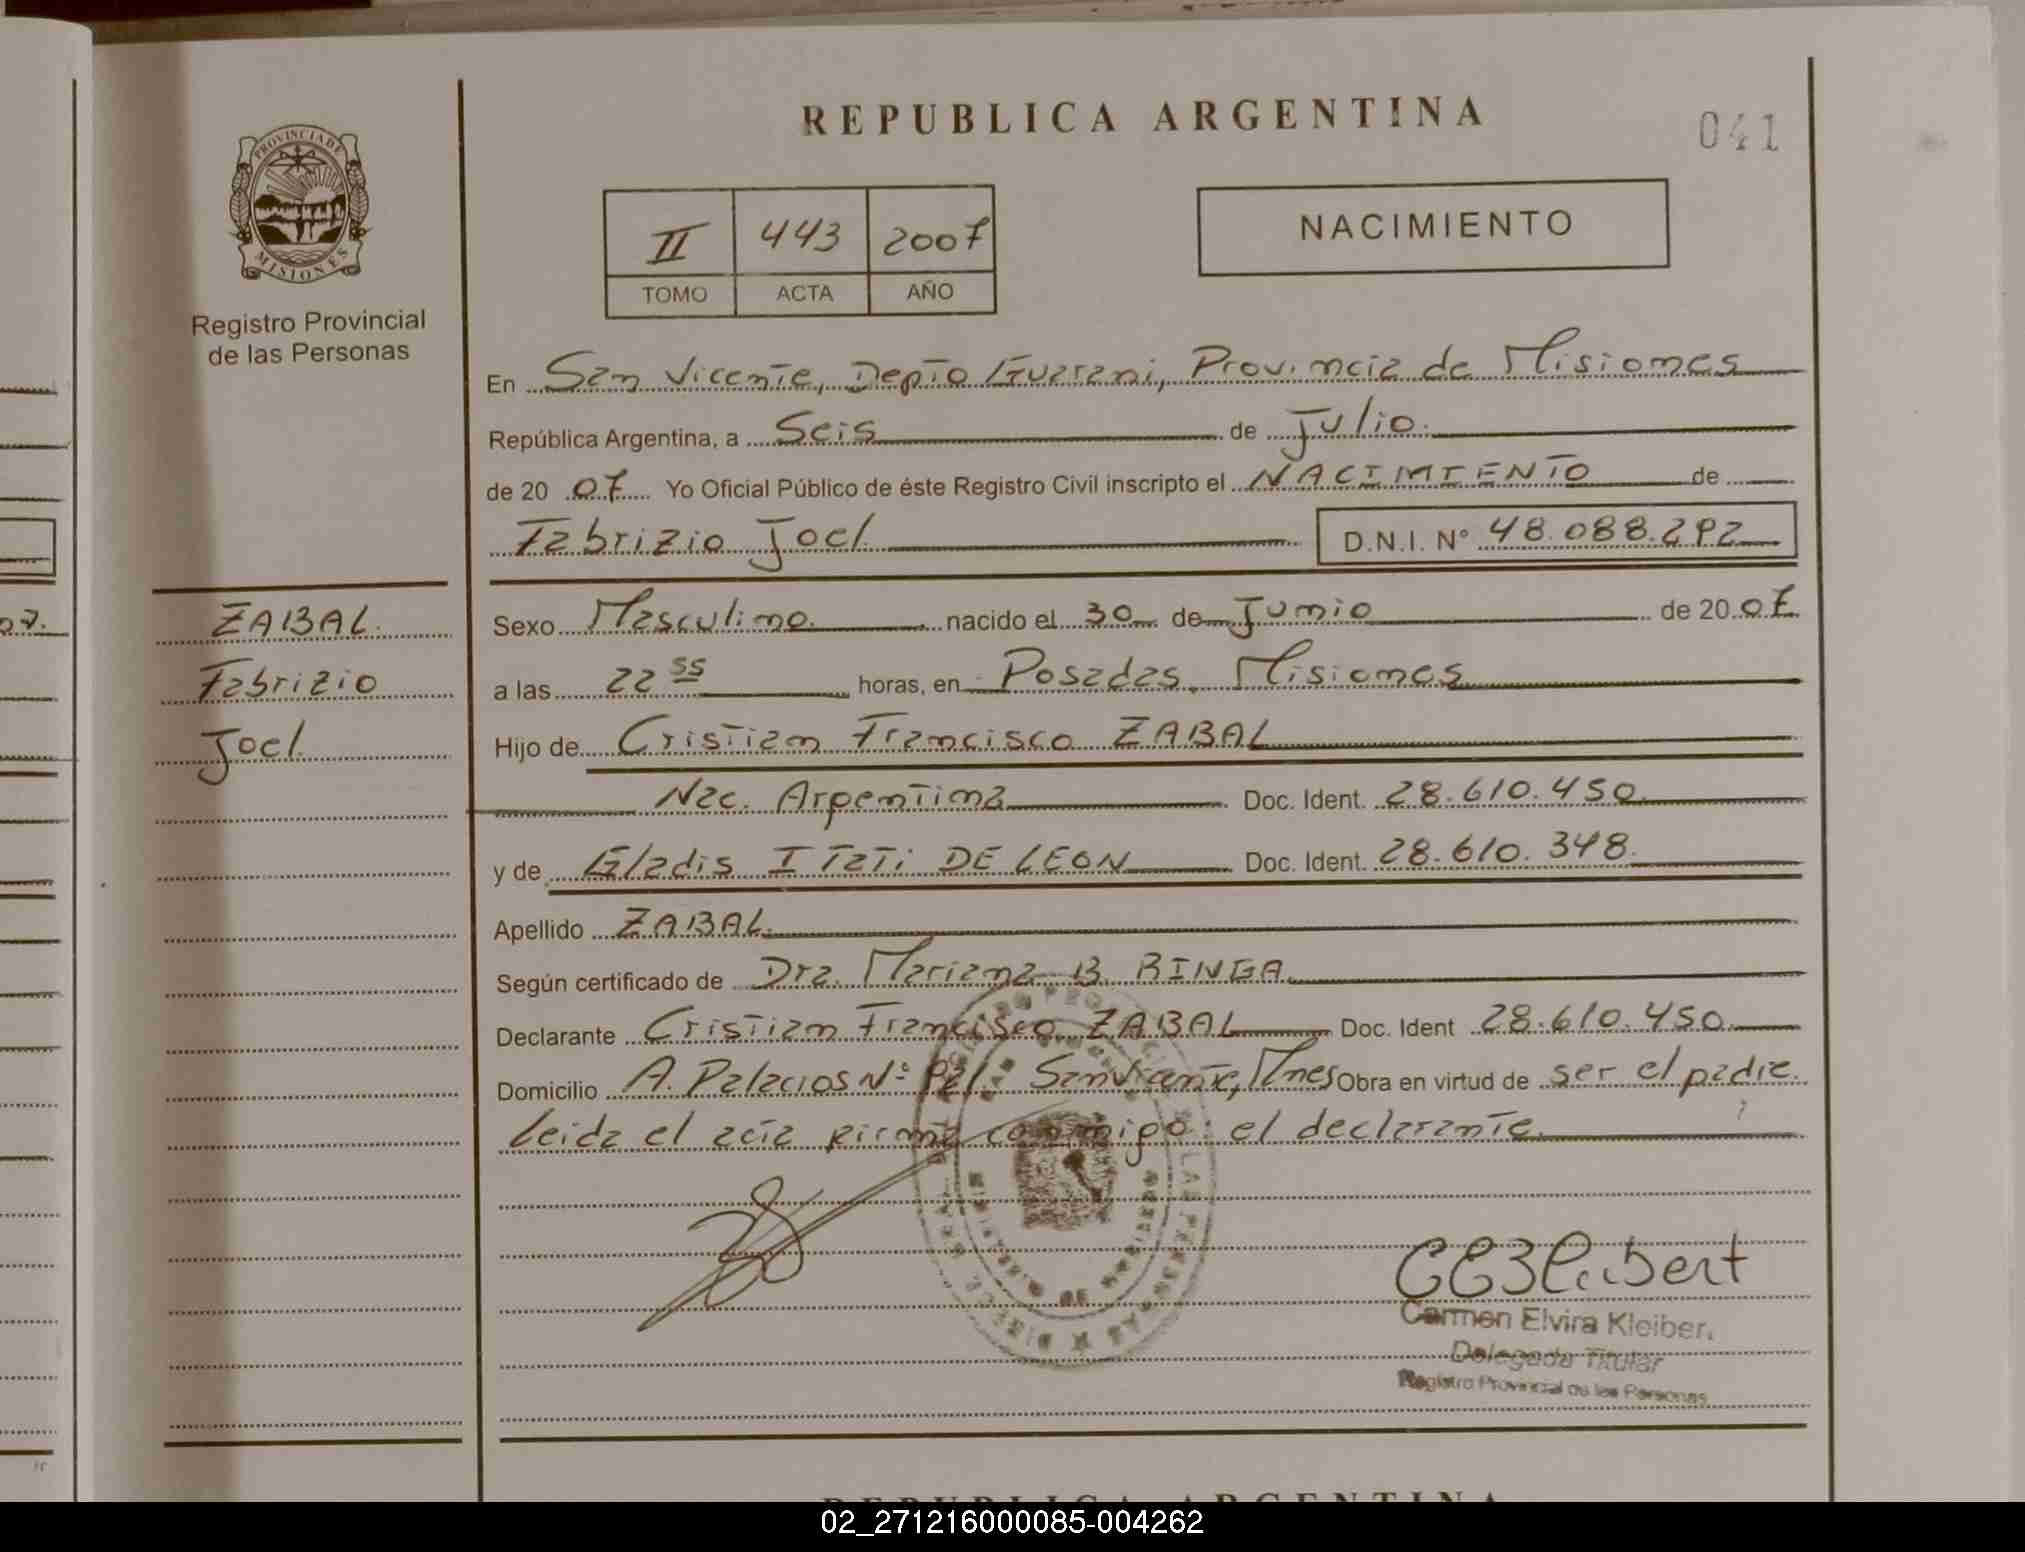 REPUBLICA ARGENTINA
041
PROVINCIA DE
MISIONES
Registro Provincial
de las Personas
II 443 2007
TOMO ACTA AÑO
NACIMIENTO
En San Vicente, Depto Guarani, Provincia de Misiones
República Argentina, a Seis de Julio.
de 20 07 Yo Oficial Público de éste Registro Civil inscripto el NACIMIENTO de
Fabrizio Joel D.N.I. Nº 48.088.292
ZABAL.
Fabrizio
Joel.
Sexo Masculino. nacido el 30 de Junio de 20 07
a las 22 55 horas, en Posadas, Misiones
Hijo de Cristian Francisco ZABAL
Nac. Argentina Doc. Ident. 28.610.450.
y de Gladis ITatí DE LEON Doc. Ident. 28.610.348.
Apellido ZABAL.
Según certificado de Dra. Mariana B. RINGA.
Declarante Cristian Francisco ZABAL Doc. Ident 28.610.450.
Domicilio A. Palacios Nº San Vicente, Mnes Obra en virtud de ser el padre.
Leida el acta firma conmigo: el declarante.
Carmen Elvira Kleiber.
Delegada Titular
Registro Provincial de las Personas
REPUBLICA ARGENTINA
02_271216000085-004262